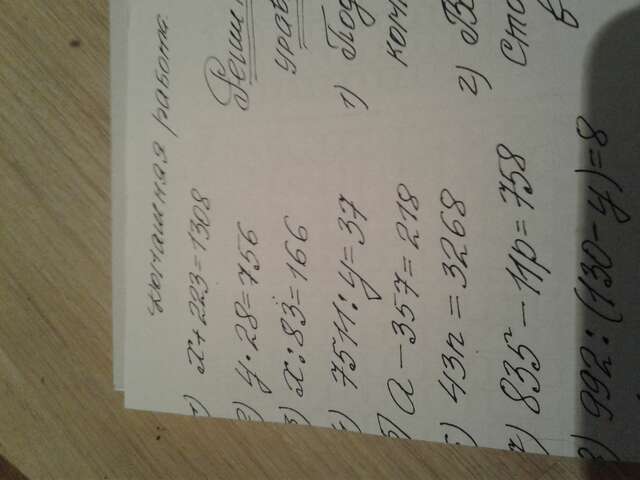 Домашняя работа
1) x + 223 = 1308
2) y · 28 = 756
3) x : 83 = 166
4) 7511 : y = 37
5) a - 357 = 218
6) 43n = 3268
7) 835 - 11p = 758
8) 992 : (130 - y) = 8
1)
2)
в